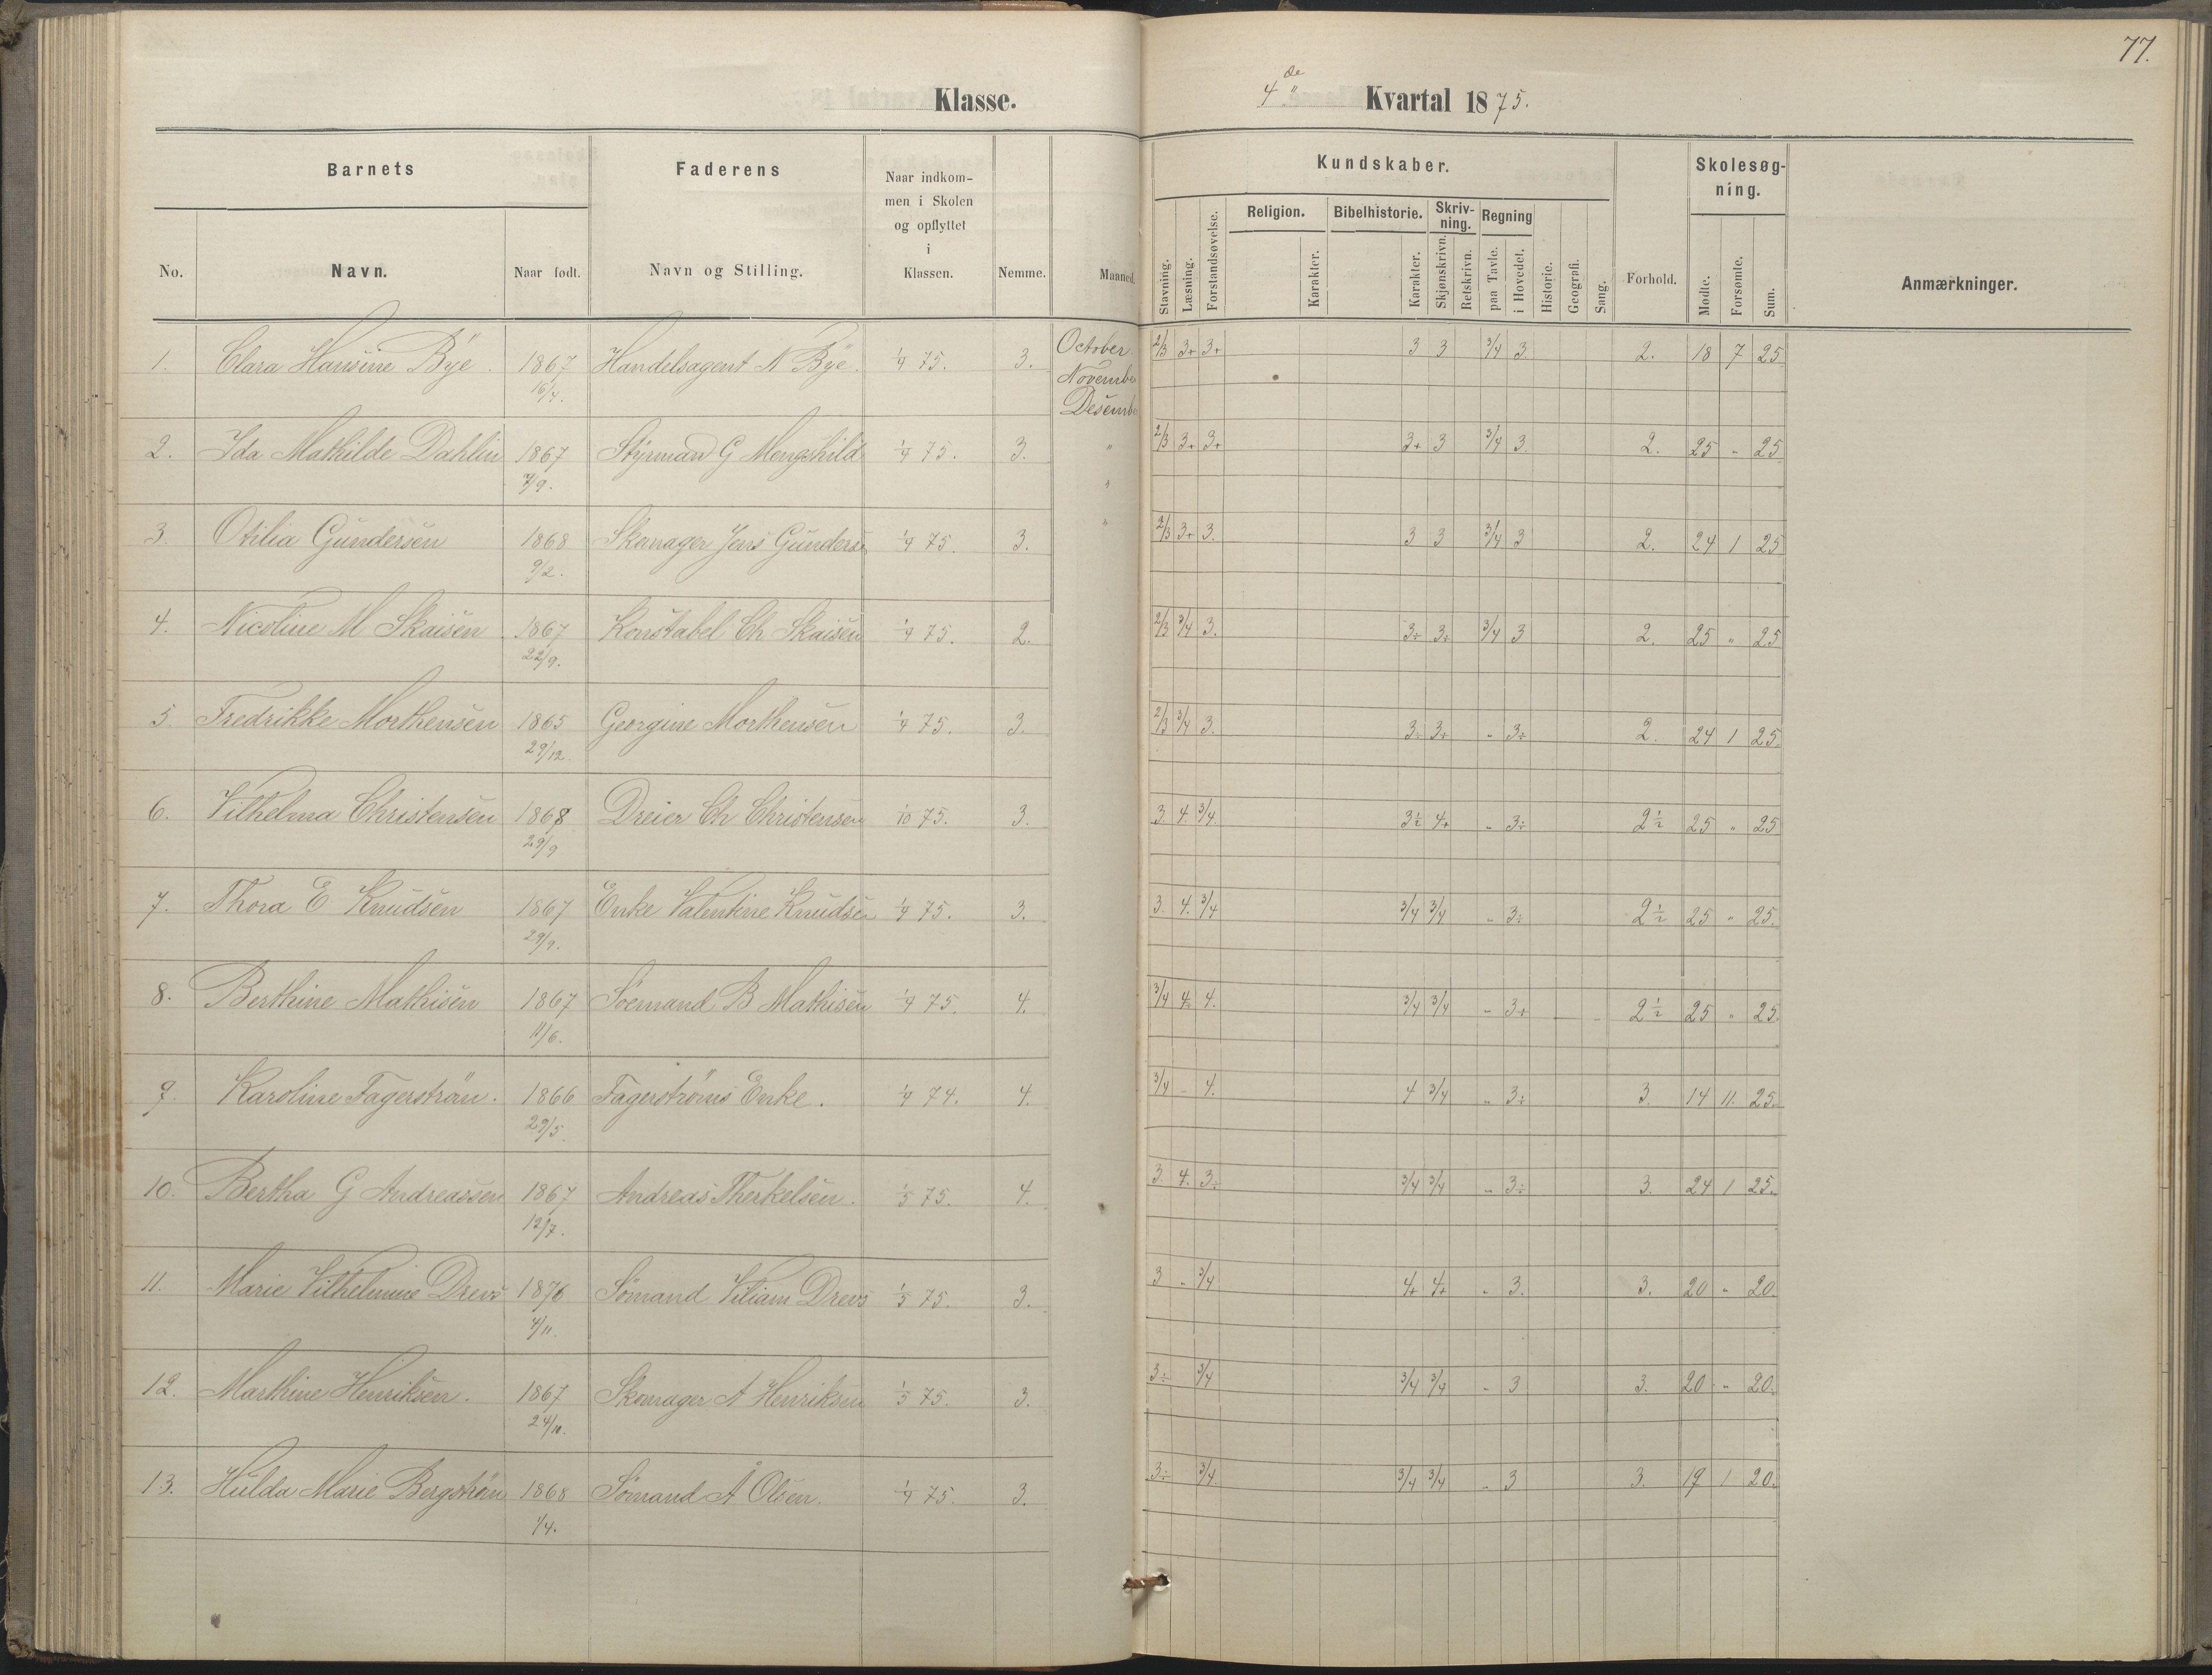 77.
Klasse.
4de Kvartal 1875.
Barnets
Faderens
Naar indkommen i Skolen og opflyttet i Klassen.
Nemme.
Maaned.
Kundskaber.
Forhold.
Skolesøgning.
Anmærkninger.
No.
Navn.
Naar født.
Navn og Stilling.
Stavning.
Læsning.
Forstandsøvelse.
Religion.
Karakter.
Bibelhistorie.
Karakter.
Skrivning.
Skjønskrivn.
Retskrivn.
Regning
paa Tavle.
i Hovedet.
Historie.
Geografi.
Sang.
Mødte.
Forsømte.
Sum.
October
November
Desember
1. Clara Hansine Bye. 1867 16/4. Handelsagent N Bye. 1/9 75. 3. 2/3 3+ 3+ 3 3 3/4 3 2. 18 7 25
2. Ida Mathilde Dahlin 1867 7/9. Styrmand G Mengshild 1/9 75. 3. " 2/3 3+ 3+ 3+ 3 3/4 3 2. 25 " 25
3. Otilia Gundersen 1868 9/2. Skomager Jens Gundersen 1/9 75. 3. " 2/3 3+ 3. 3 3 3/4 3 2. 24 1 25
4. Nicoline M Skaisen 1867 22/9. Konstabel Ch Skaisen 1/9 75. 2. 2/3 3/4 3. 3÷ 3÷ 3/4 3 2. 25 " 25
5. Fredrikke Morthensen 1865 29/12 Georgine Morthensen 1/9 75. 3. 2/3 3/4 3. 3÷ 3+ " 3+ 2. 24 1 25
6. Vilhelma Christensen 1868 29/9 Dreier Ch Christensen 1/10 75. 3. 3 4 3/4 3÷ 4+ " 3÷ 2½ 25 " 25
7. Thora E Knudsen 1867 29/9. Enke Valentine Knudsen 1/9 75. 3. 3. 4. 3/4 3/4 3/4 " 3÷ 2½ 25 " 25.
8. Berthine Mathisen 1867 11/6. Søemand B Mathisen 1/9 75. 4. 3/4 4÷ 4. 3/4 3/4 " 3+ 2½ 25 " 25
9. Karoline Fagerström. 1866 29/5. Fagerströms Enke. 1/9 74. 4. 3/4 - 4. 4 3/4 " 3÷ 3. 14 11. 25.
10. Bertha G Andreassen 1867 12/7. Andreas Therkelsen. 1/5 75. 4. 3. 4. 3÷ 3/4 3/4 " 3÷ 3. 24 1 25.
11. Marie Vilhelmine Drevs 1876 4/11. Sømand Viliam Drevs 1/5 75. 3. 3 - 3/4 4+ 4+ " 3. 3. 20 " 20.
12. Marthine Henriksen. 1867 24/10. Skomager A Henriksen 1/5 75. 3. 3÷ 3/4 3/4 3/4 " 3 3. 20 " 20.
13. Hulda Marie Bergström 1868 1/4. Sømand A Olsen. 1/9 75. 3. 3÷ 3/4 3/4 3/4 " 3 3. 19 1 20.